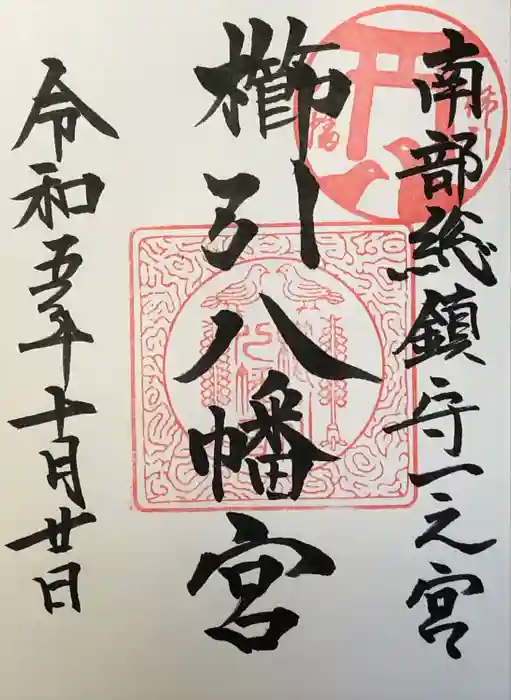 南部総鎮守一之宮
櫛引八幡宮
令和五年十月廿日